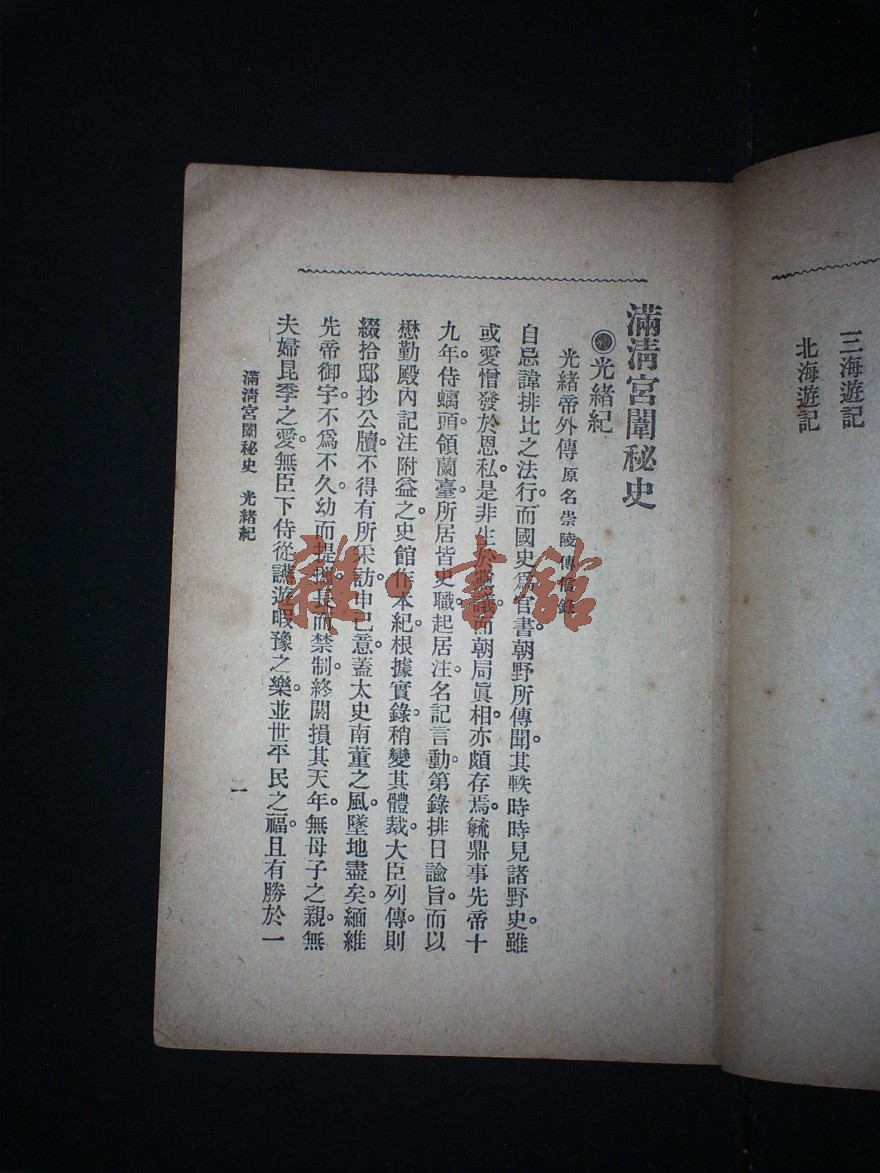 三海遊記
北海遊記
滿淸宮闈秘史
光緒紀
光緒帝外傳 原名崇陵傳信錄
自忌諱排比之法行。而國史爲官書。朝野所傳聞。其軼時時見諸野史。雖
或愛憎發於恩私。是非生於黨議。而朝局眞相。亦頗存焉。毓鼎事先帝十
九年。侍螭頭。領蘭臺。所居皆史職。起居注名記言動。第錄排日諭旨。而以
懋勤殿內記注附益之。史館作本紀。根據實錄。稍變其體裁。大臣列傳。則
綴拾邸抄公牘。不得有所采訪申已意。蓋太史南董之風。墜地盡矣。緬維
先帝御宇。不爲不久。幼而提攜。長而禁制。終閼損其天年。無母子之親。無
夫婦昆季之愛。無臣下侍從讌遊暇豫之樂。並世平民之福。且有勝於一
滿淸宮闈秘史 光緒紀
一
雜·書館